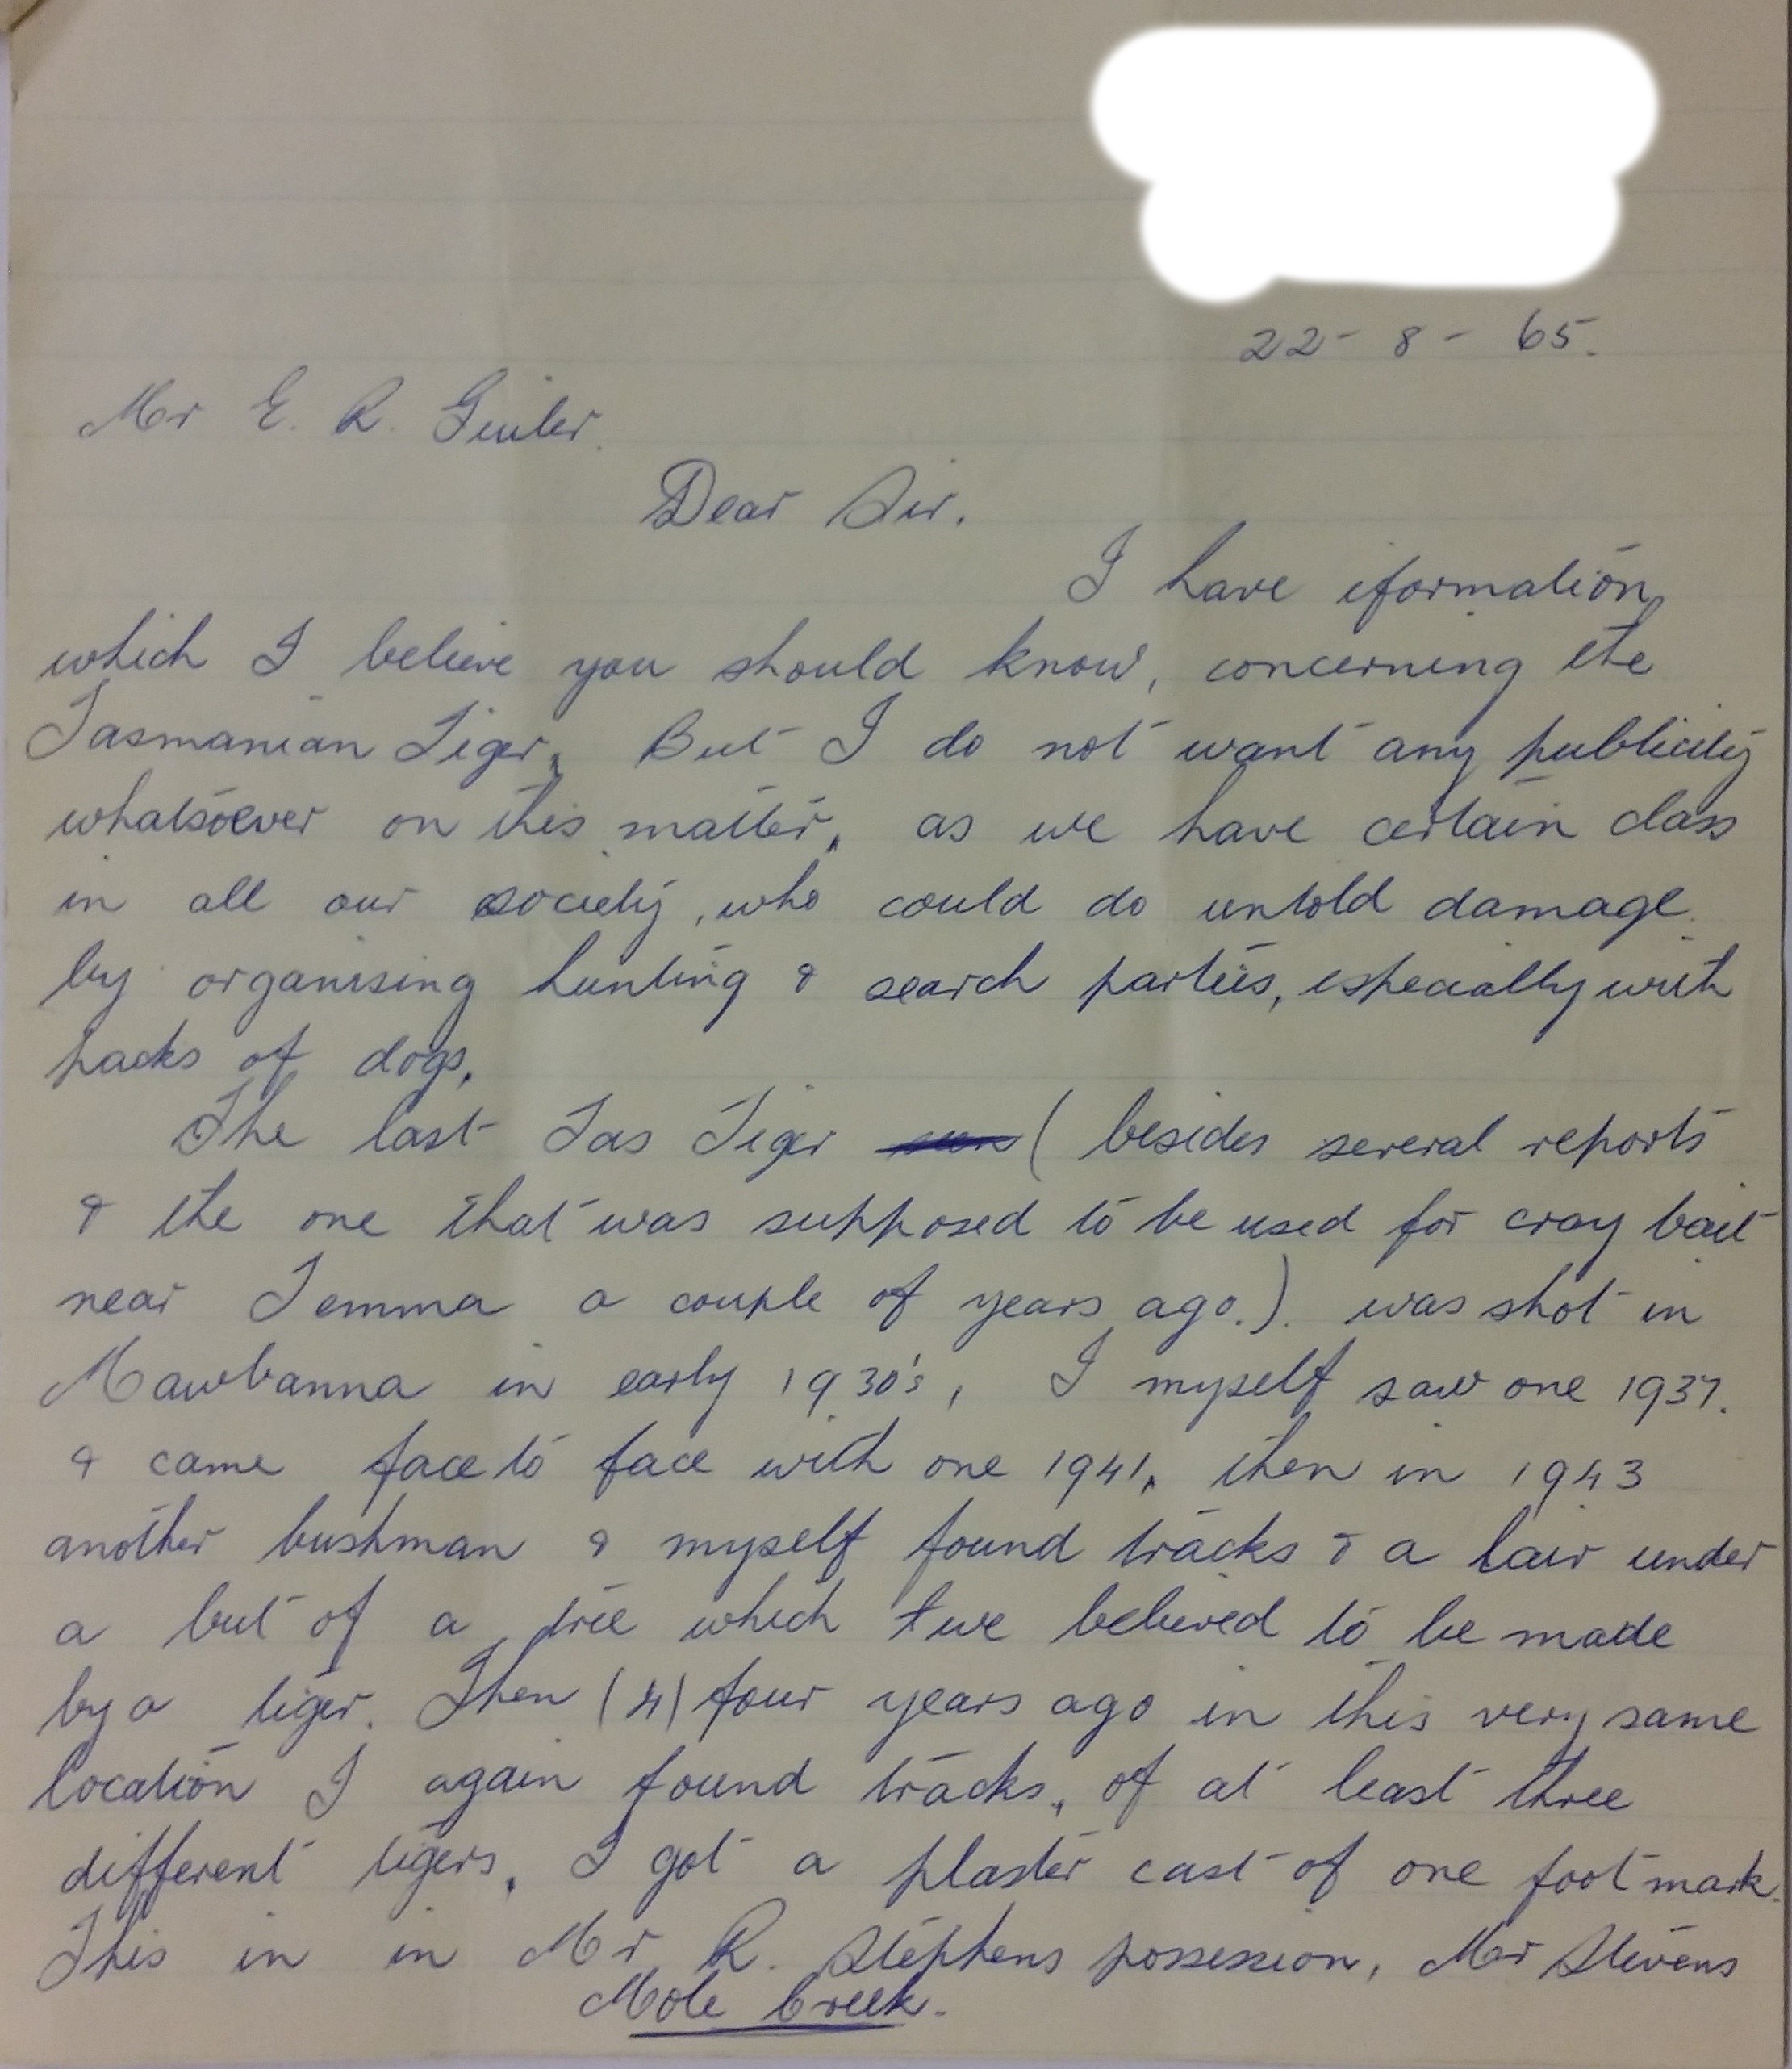 22 - 8 - 65.
Mr E. R. Guiler.
Dear Sir.
I have iformation
which I believe you should know, concerning the
Tasmanian Tiger. But I do not want any publicity
whatsoever on this matter, as we have certain class
in all our society, who could do untold damage
by organising hunting & search parties, especially with
packs of dogs.
The last Tas Tiger ( besides several reports
& the one that was supposed to be used for cray bait
near Temma a couple of years ago.). was shot in
Mawbanna in early 1930's, I myself saw one 1937.
& came face to face with one 1941, then in 1943
another bushman & myself found tracks & a lair under
a but of a tree which we believed to be made
by a tiger. Then (4) four years ago in this very same
location I again found tracks, of at least three
different tigers, I got a plaster cast of one foot mark.
This in in Mr R. Stephens possession, Mr Stevens
Mole Creek.